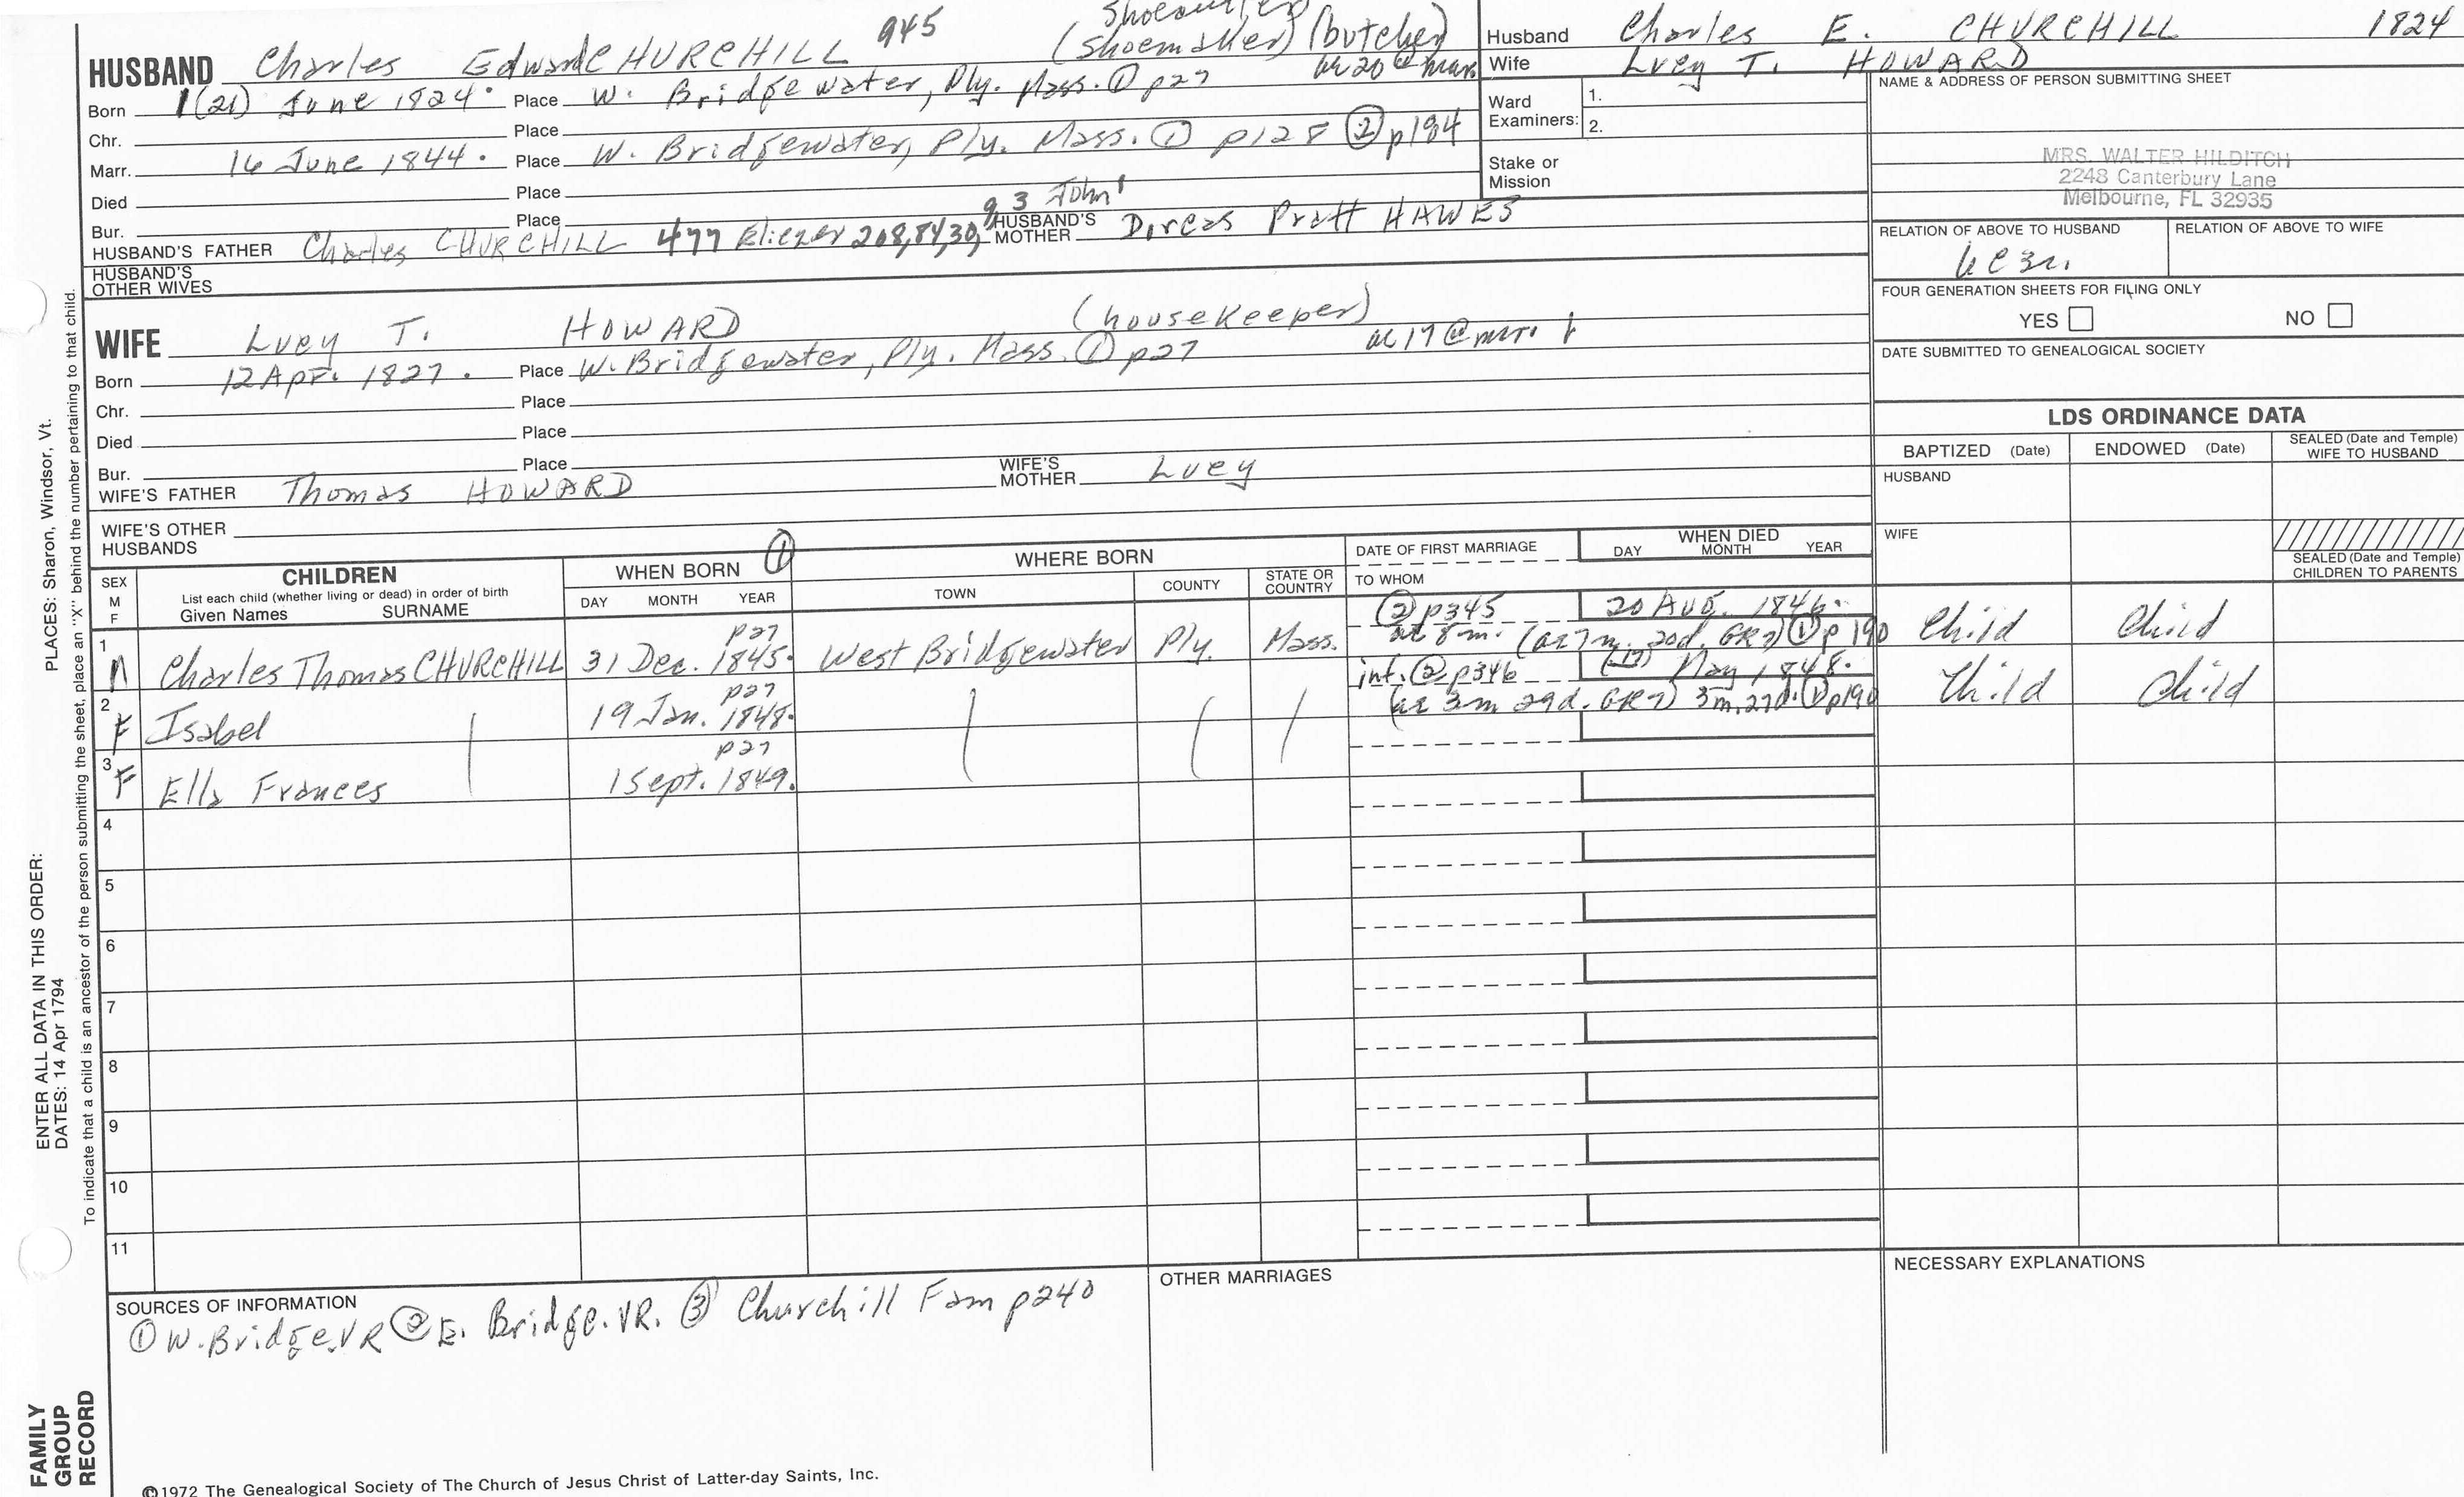 945
(Shoemaker) (butcher)
HUSBAND Charles Edward CHURCHILL
ae 20 @ marr
Born 1(21) June 1824. Place W. Bridgewater, Ply. Mass. ① p27
Chr. Place
Marr. 16 June 1844. Place W. Bridgewater, Ply. Mass. ① p128 ② p184
Died Place
Bur. Place
HUSBAND'S FATHER Charles CHURCHILL 477 Eliezer 208, 84, 30, 9 3 John¹ HUSBAND'S MOTHER Dorcas Pratt HAWES
HUSBAND'S OTHER WIVES
WIFE Lucy T. HOWARD (housekeeper)
ae 17 @ marr
Born 12 Apr. 1827. Place W. Bridgewater, Ply. Mass. ① p27
Chr. Place
Died Place
Bur. Place
WIFE'S FATHER Thomas HOWARD WIFE'S MOTHER Lucy
WIFE'S OTHER HUSBANDS
Husband Charles E. CHURCHILL 1824
Wife Lucy T. HOWARD
Ward Examiners: 1.
2.
Stake or Mission
NAME & ADDRESS OF PERSON SUBMITTING SHEET
MRS. WALTER HILDITCH
2248 Canterbury Lane
Melbourne, FL 32935
RELATION OF ABOVE TO HUSBAND RELATION OF ABOVE TO WIFE
FOUR GENERATION SHEETS FOR FILING ONLY
YES NO
DATE SUBMITTED TO GENEALOGICAL SOCIETY
LDS ORDINANCE DATA
BAPTIZED (Date) ENDOWED (Date) SEALED (Date and Temple) WIFE TO HUSBAND
HUSBAND
WIFE
SEALED (Date and Temple) CHILDREN TO PARENTS
SEX M F
CHILDREN
List each child (whether living or dead) in order of birth
Given Names SURNAME
WHEN BORN ①
DAY MONTH YEAR
WHERE BORN
TOWN COUNTY STATE OR COUNTRY
DATE OF FIRST MARRIAGE
TO WHOM
WHEN DIED
DAY MONTH YEAR
② p345 20 Aug. 1846.
p27
1 M Charles Thomas CHURCHILL 31 Dec. 1845. West Bridgewater Ply. Mass. ae 8 m. (ae 7 m. 20d. GR7) ① p190 Child Child
int. ② p346 (17) May 1848.
p27
2 F Isabel 19 Jan. 1848. (ae 3m 29d. GR7) 3m, 27d. ① p190 Child Child
p27
3 F Ella Frances 1 Sept. 1849.
4
5
6
7
8
9
10
11
SOURCES OF INFORMATION
① W. Bridge. VR ② E. Bridge. VR. ③ Churchill Fam p240
OTHER MARRIAGES
NECESSARY EXPLANATIONS
©1972 The Genealogical Society of The Church of Jesus Christ of Latter-day Saints, Inc.
FAMILY GROUP RECORD
ENTER ALL DATA IN THIS ORDER:
DATES: 14 Apr 1794 PLACES: Sharon, Windsor, Vt.
To indicate that a child is an ancestor of the person submitting the sheet, place an "X" behind the number pertaining to that child.